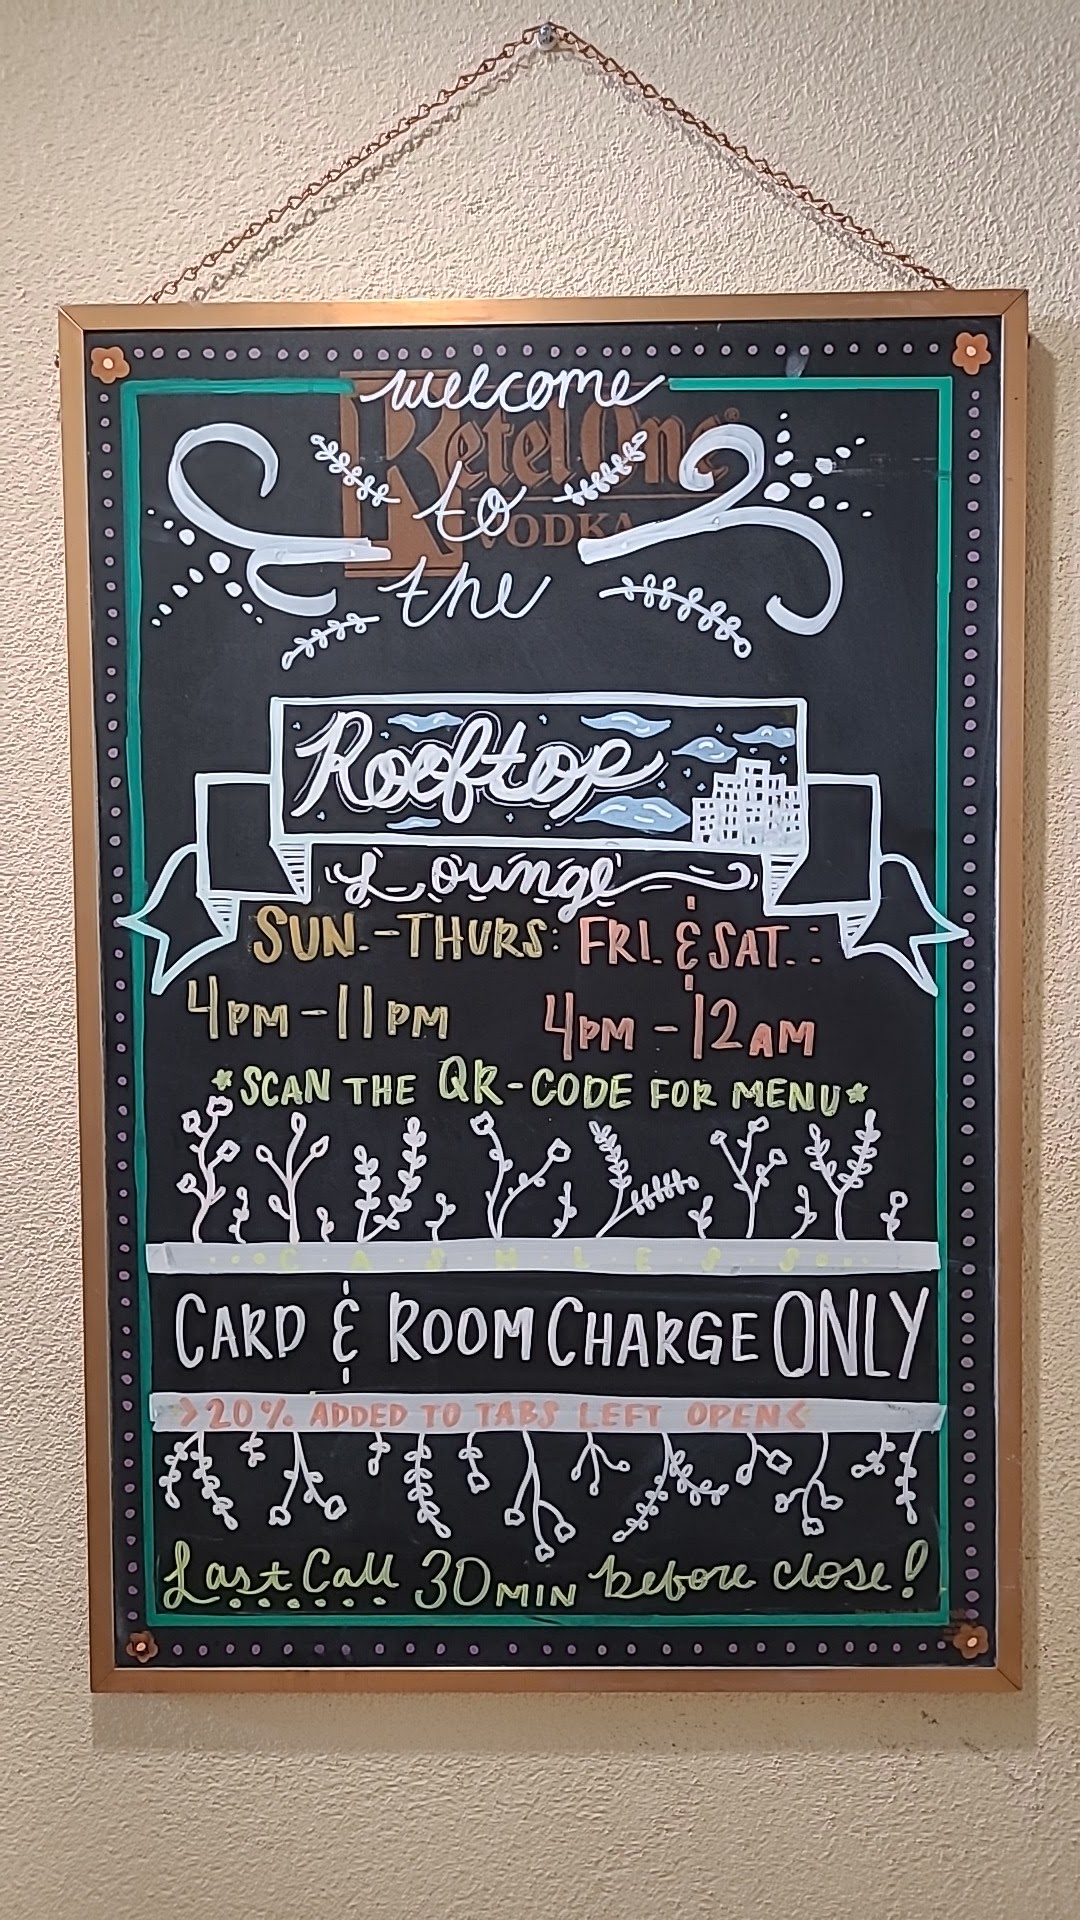 welcome
Ketel One®
to
VODKA
the
Rooftop
Lounge
SUN.-THURS: FRI. & SAT.:
4PM-11PM 4PM-12AM
*SCAN THE QR-CODE FOR MENU*
CASHLESS
CARD & ROOM CHARGE ONLY
>20% ADDED TO TABS LEFT OPEN<
Last Call 30MIN before close!